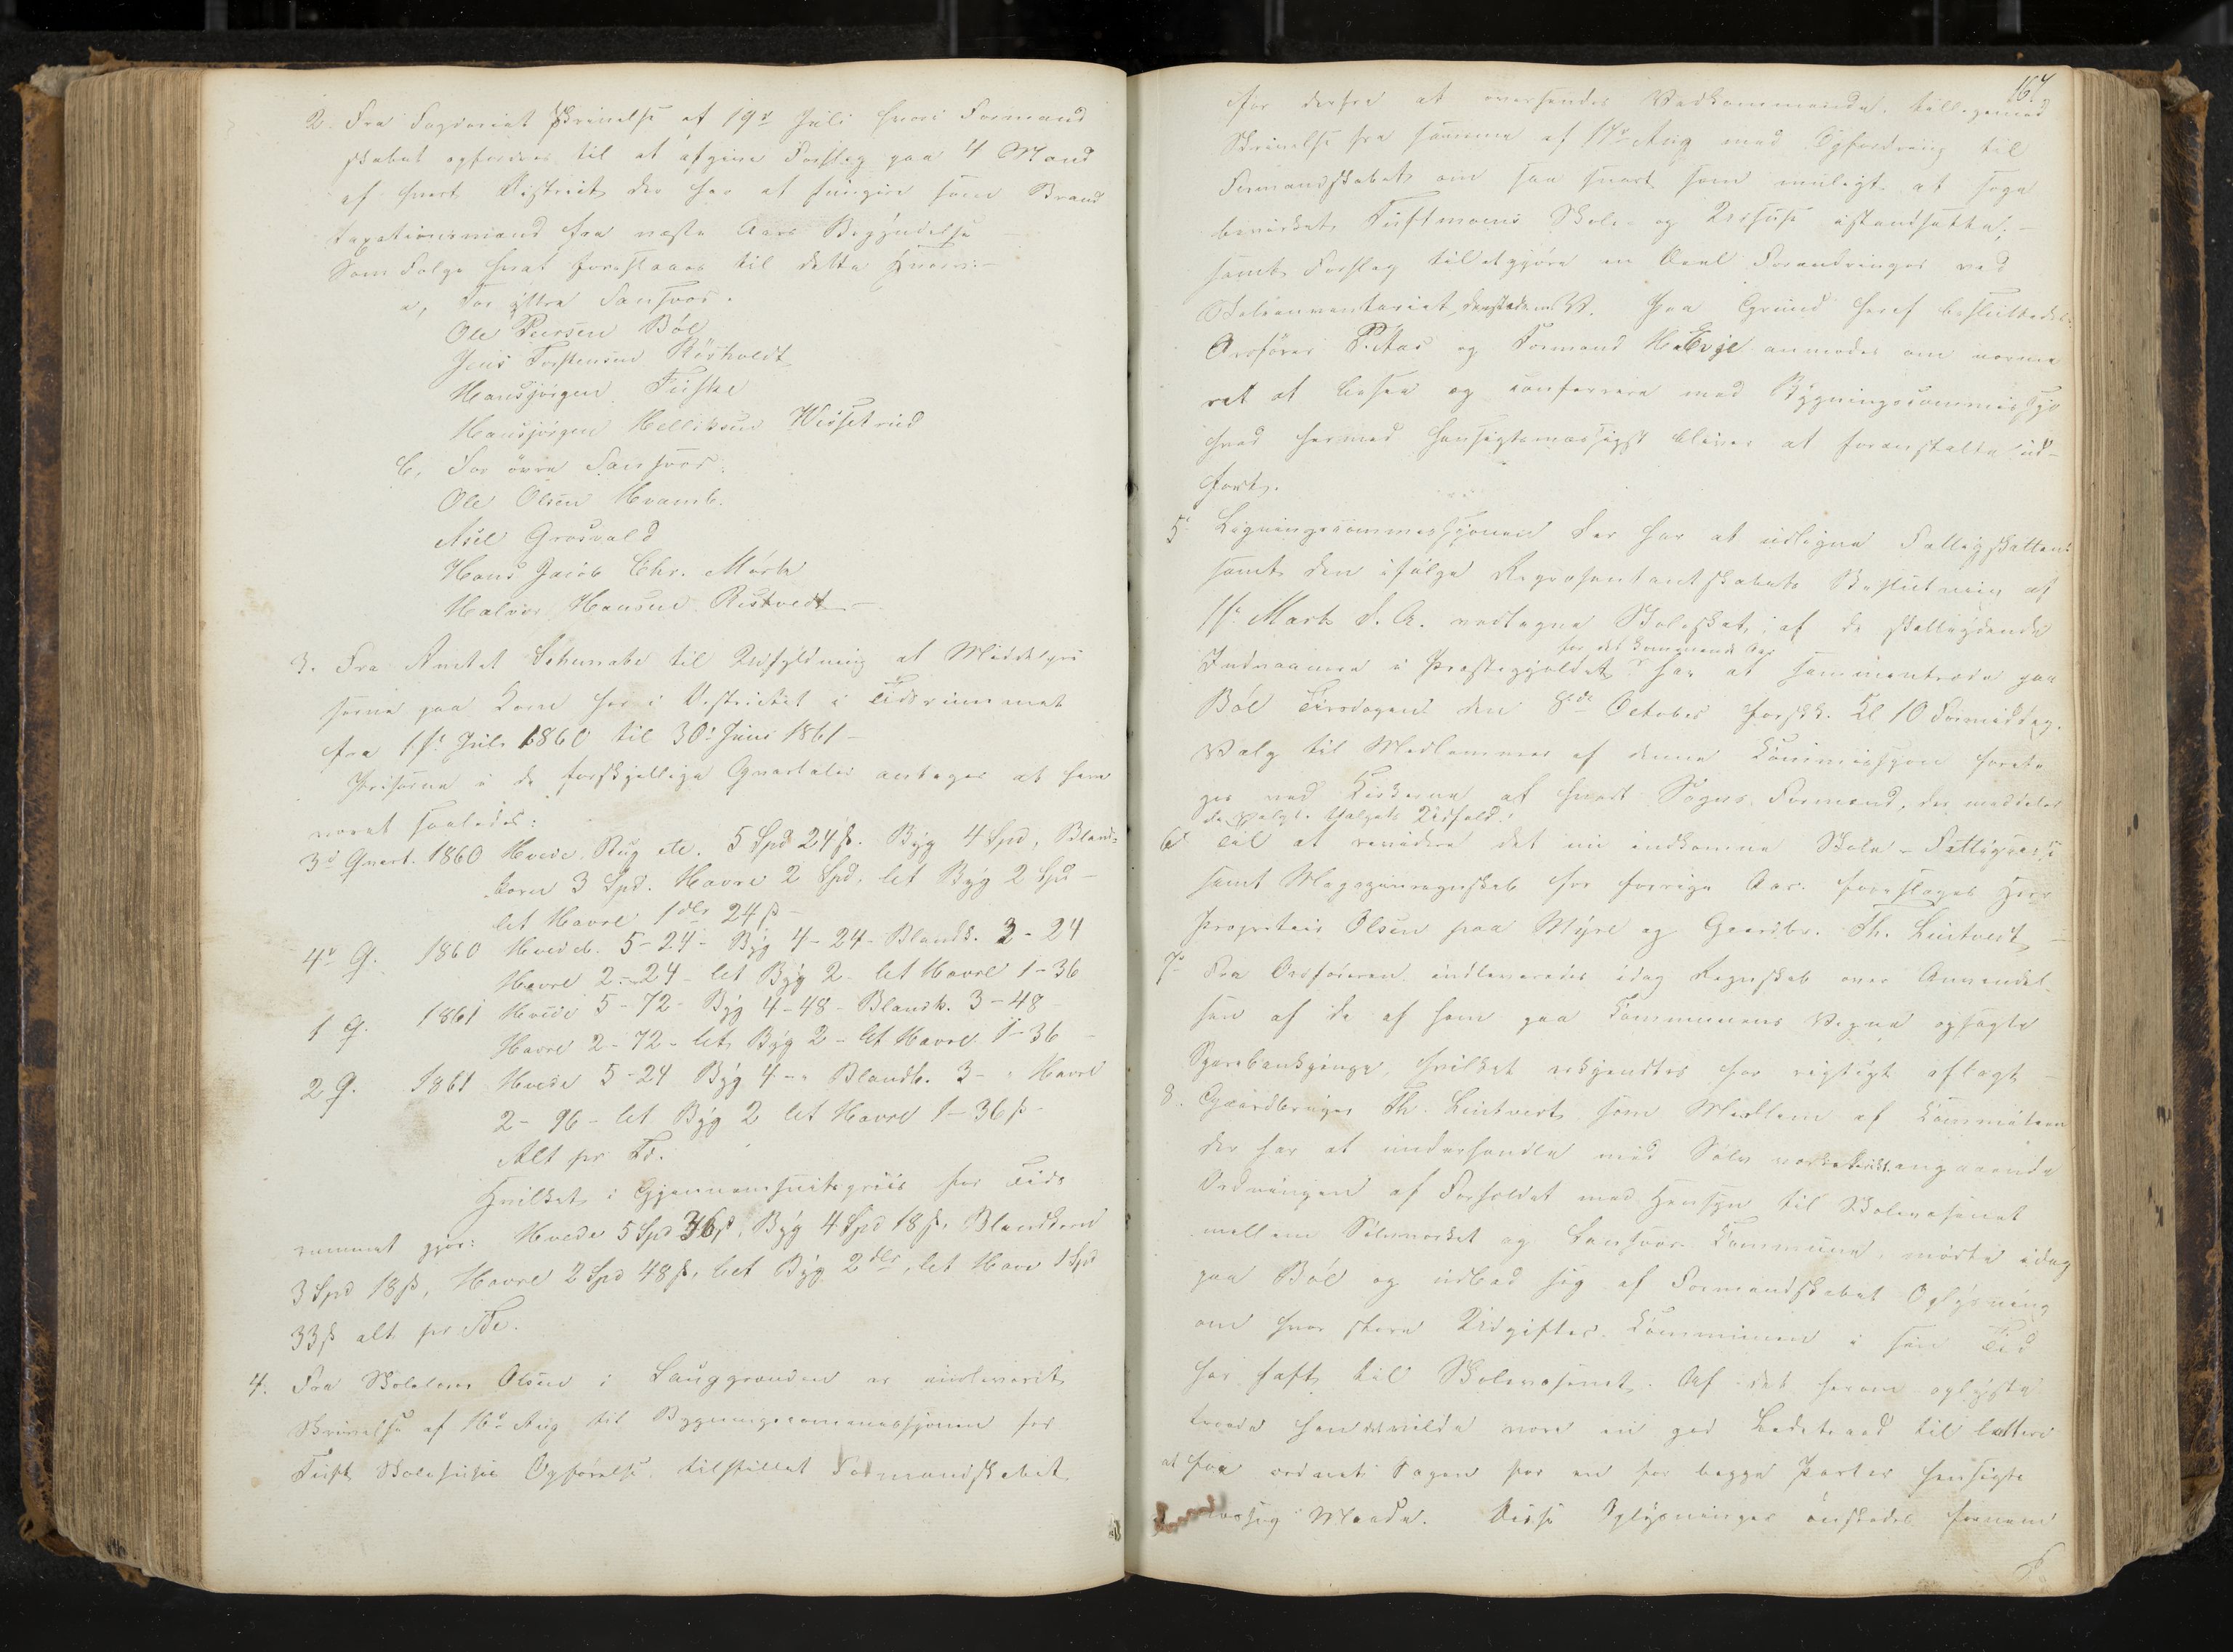 2. Fra Fogderiet Skrivelse af 19de Juli hvori Formand
skabet opfordres til at afgive Forslag paa 4 Mænd
af hvert District der har at fungere som Brand
taxationsmænd fra næste Aars Begyndelse
Som Følge hvat foreslaaes til dette Hverv: -
a, For ytre Sandsvær.
Ole Peersen Bøl
Jens Torstensen
Hansjørgen Tufte
Hansjørgen Helliksen
b, For övre Sandsvær.
Ole Olsen Hvamb.
Axel Grosvald
Hans Jacob Chr. Mörk
Halvor Hansen Rustvedt -
3. Fra Amtet Schemata til Udfyldning af Middelpri
serne paa Korn her i Districtet i Tidsrummet
fra 1ste Juli 1860 til 30te Juni 1861 -
Priserne i de forskjellige Qvartaler antages at have
været saaledes:
3d Qvart. 1860 Hvede, Rug etc. 5 Spd 24 ß. Byg 4 Spd, Bland-
korn 3 Spd. Havre 2 Spd, let Byg 2 Spd -
let Havre 1 dlr 24 ß -
4de Q. 1860 Hvede 5-24- Byg 4-24- Blandk. 3-24
Havre 2-24- let Byg 2- let Havre 1-36
1 Q. 1861 Hvede 5-72- Byg 4-48- Blandk. 3-48-
Havre 2-72- let Byg 2- let Havre 1-36 -
2 Q. 1861 Hvede 5-24 Byg 4-" Blandk. 3-" Havre
2-96- let Byg 2 let Havre 1-36 ß -
Alt pr Td.
Hvilket i Gjennemsnitspriis for Tids
rummet gjør: Hvede 5 Spd 36 ß, Byg 4 Spd 18 ß, Blandkorn
3 Spd 18 ß, Havre 2 Spd 48 ß, let Byg 2 dlr, let Havre 1 Spd
33 ß alt pr Tde.
4. Fra Skolelærer Olsen i Lauggrenden er indleveret
Skrivelse af 16de Aug til Bygningscommissjonen for
Tuft Skolehuses Opførelse, tilstillet Formandskabet
167
for derfra at oversendes Vedkommende, tilligemed
Skrivelse fra samme af 17de Aug med Opfordring til
Formandskabet om saa snart som muligt at søge
bevirket Tuftmoens Skole- og Udhuse istandsatte, -
samt Forslag til at gjøre en Deel Forandringer ved
Skoleinventariet densteds. Paa Grund heraf besluttedes:
Ordfører P. Aas og Formand H. Evje anmodes om nærme
ret at besee og conferrere med Bygningscommissjo
hvad hermed hensigtsmæssigst bliver at foranstalte ud-
ført.
5te Ligningscommissjonen der har at udligne Fattigskatten
samt den ifølge Repræsentantskabets Beslutning af
1ste Marts d. A. vedtagne Skoleskat, af de skatteydende
for det kommende Aar
Indvaanere i Præstegjeldet har at sammentræde paa
Bøl Tirsdagen den 8de October førstk. Kl 10 Formiddag.
Valg til Medlemmer af denne Commissjon foreta
ges ved Kirkerne af hvert Sogns Formænd, der meddeler
de valgte Valgets Udfald.
6te Til at revidere det nu indkomne Skole- Fattigvæsen
samt Magazinregnskab for forrige Aar, foreslages Herr
Proprietair Olsen paa Myre og Gaardbr. Th. Lintvedt -
7de Fra Ordføreren indleveredes idag Regnskab over Anvendel-
sen af de af ham paa Communens Vegne opsagte
Sparebankpenge, hvilket erkjendtes for rigtigt aflagt -
8. Gaardbruger Th. Lintvedt som Medlem af Committeen
der har at underhandle med Sølvværksdirekt. angaaende
Ordningen af Forholdet med Hensyn til Skolevæsenet
mellem Sølvværket og Sandsvær Commune, mødte idag
paa Bøl og udbad sig af Formandskabet Oplysning
om hvor store Udgifter Communen i sin Tid
har haft til Skolevæsenet. Af det herom oplyste
troede han det vilde være en god Ledetraad til lettere
at faa ordnet Sagen paa en for begge Parter hensigts
mæssig Maade. Disse Oplysninger ønskedes